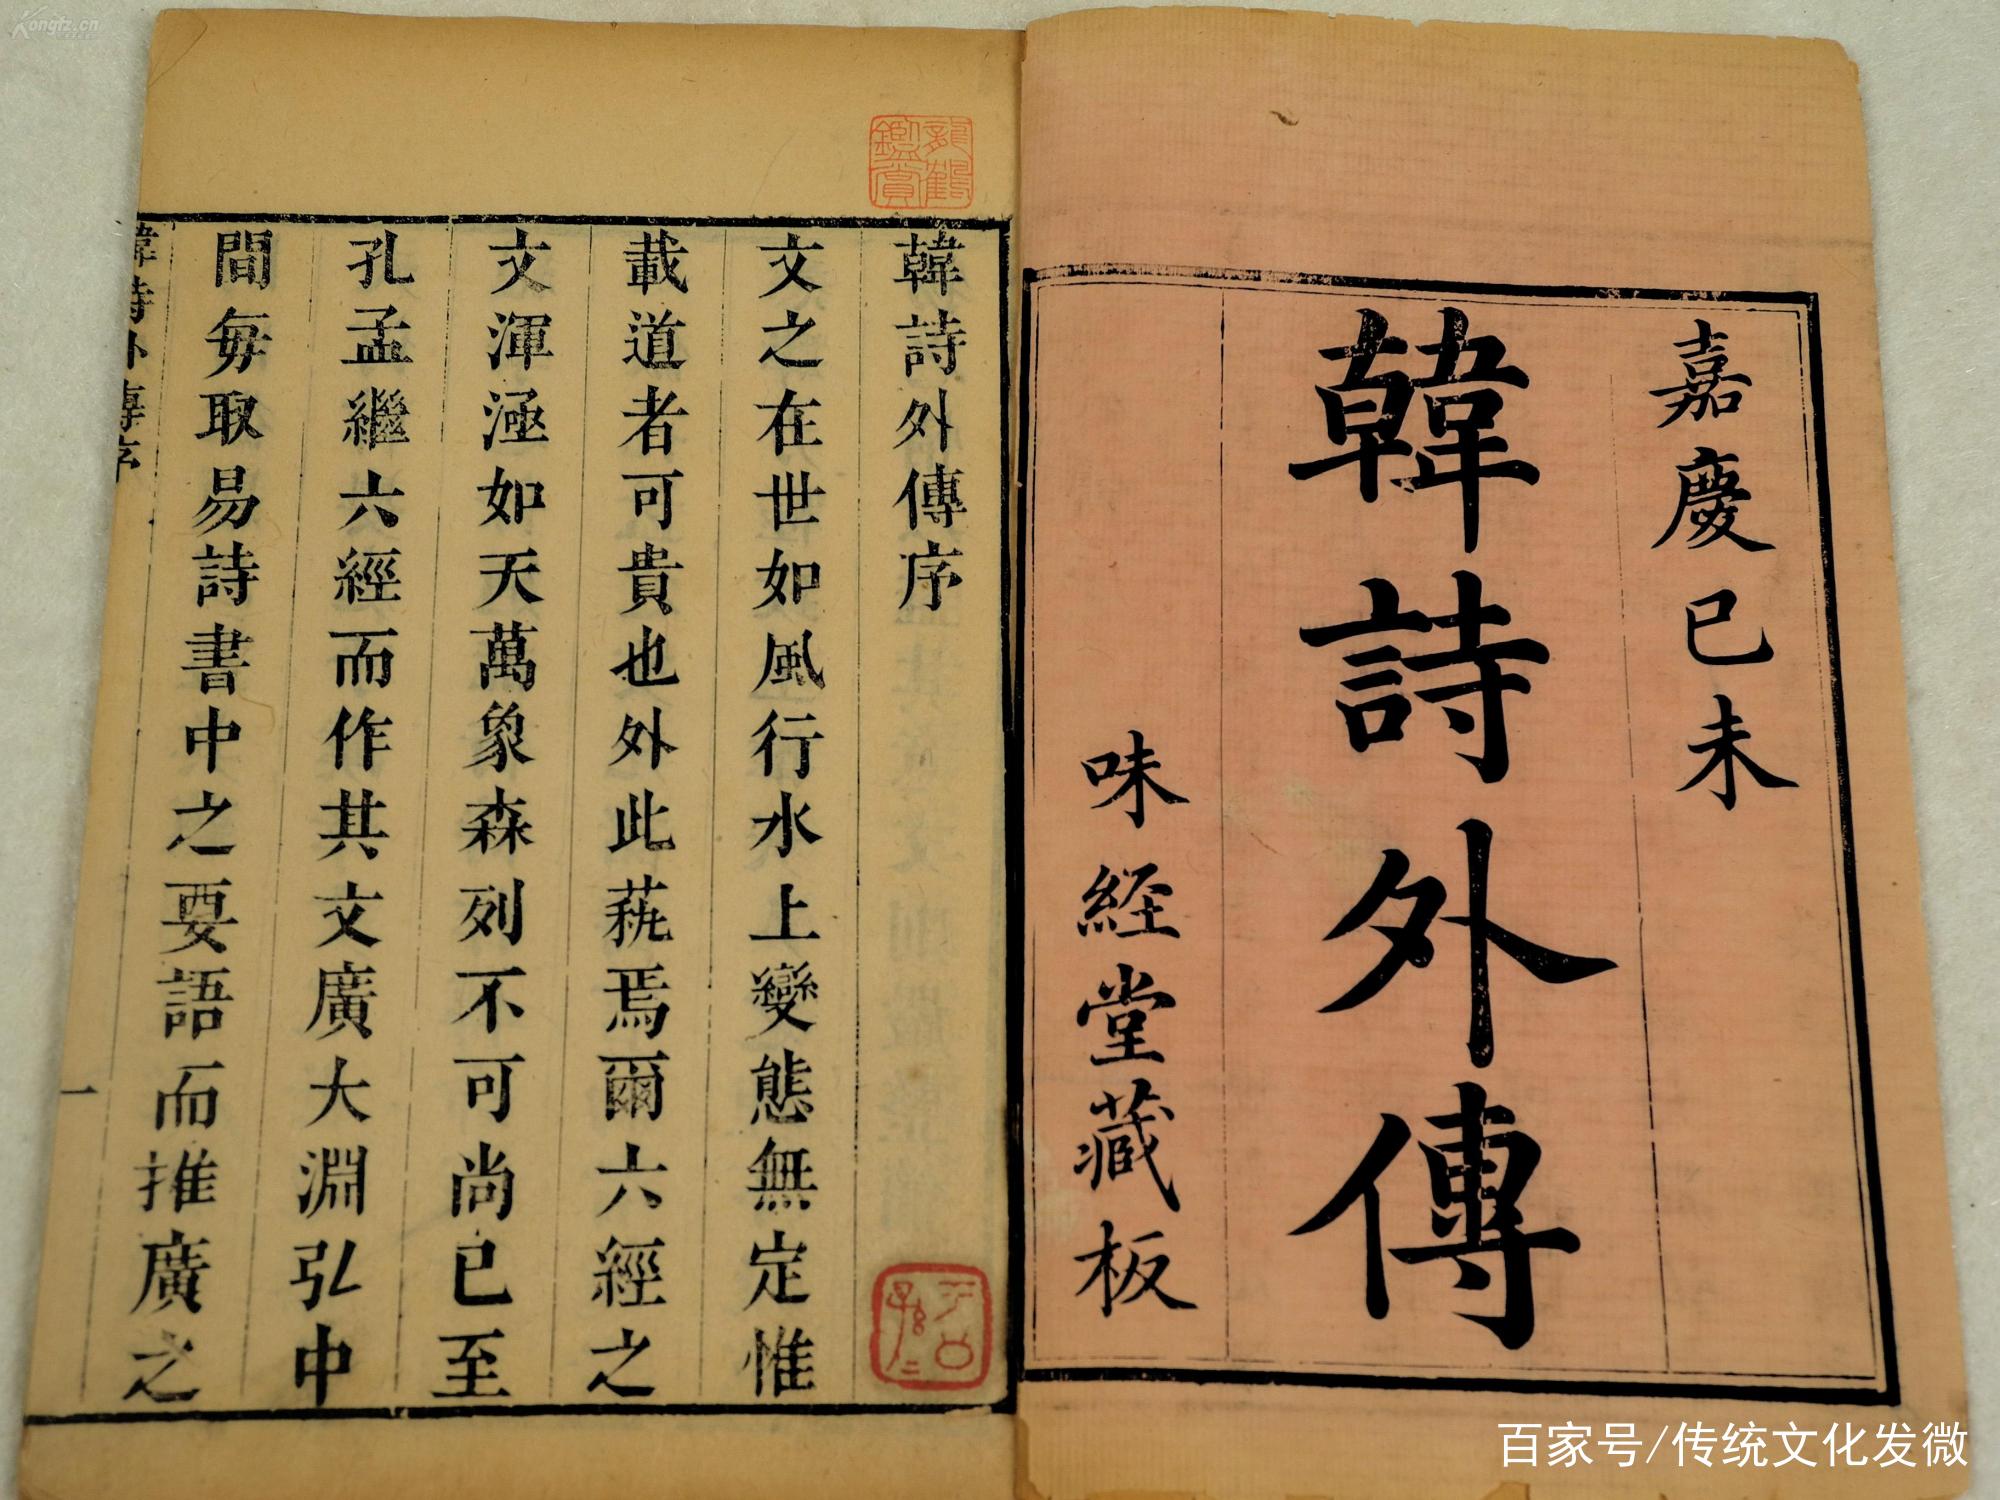 嘉慶己未
韓詩外傳
味経堂藏板
韓詩外傳序
文之在世如風行水上變態無定惟
載道者可貴也外此蓺焉爾六經之
文渾涵如天萬象森列不可尚已至
孔孟繼六經而作其文廣大淵弘中
間每取易詩書中之要語而推廣之
韓詩外傳序
一
鑑賞
百家号/传统文化发微
Kongfz.cn